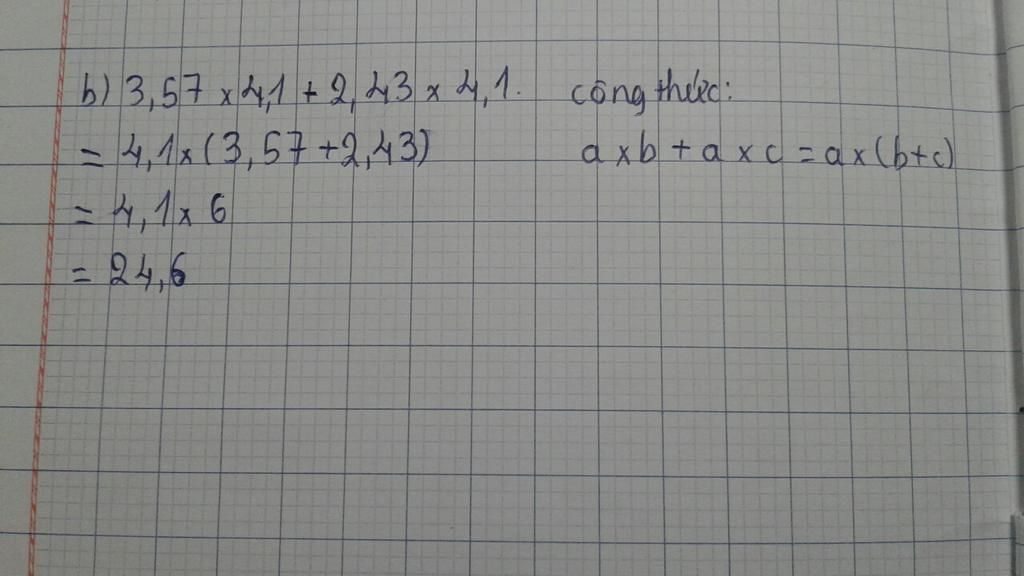 b) 3,57 x 4,1 + 2,43 x 4,1. công thức:
= 4,1 x (3,57 + 2,43) a x b + a x c = a x (b+c)
= 4,1 x 6
= 24,6